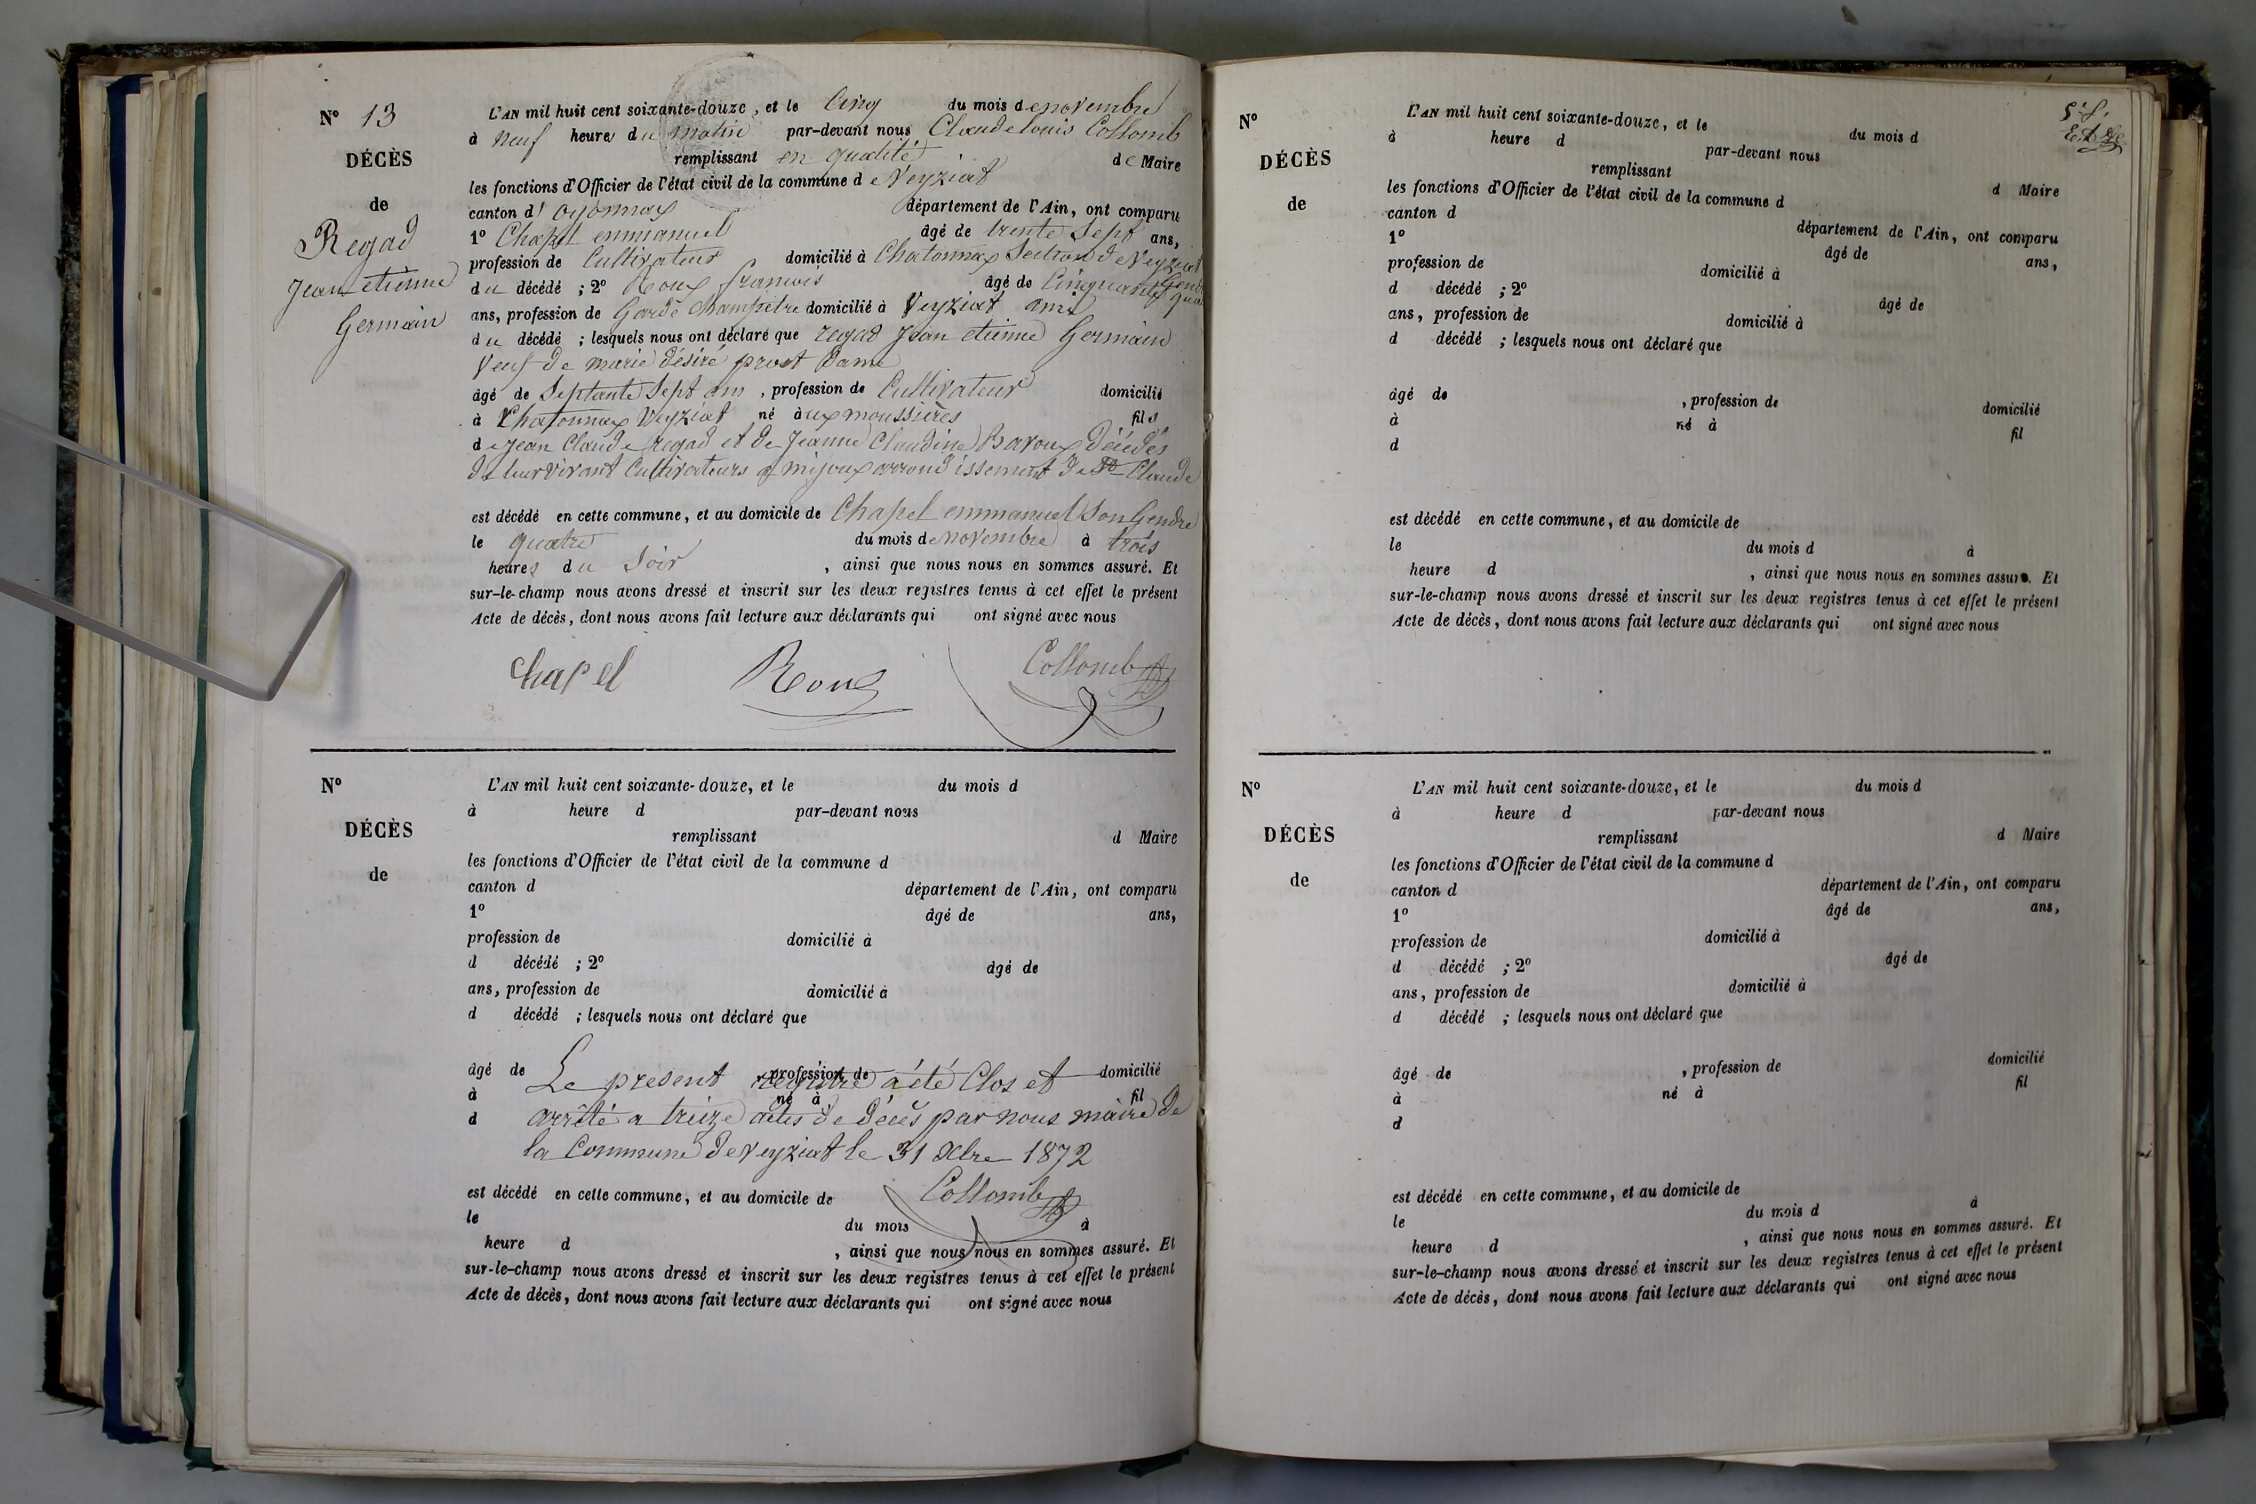 N° 13
DÉCÈS
de
Regad
Jean etienne
Germain
L'AN mil huit cent soixante-douze, et le Cinq du mois de novembre
à neuf heures du matin par-devant nous Claude louis Collomb
remplissant en qualité de Maire
les fonctions d'Officier de l'état civil de la commune de Veyziat
canton d' oyonnax département de l'Ain, ont comparu
1° Chapel emmanuel âgé de trente Sept ans,
profession de Cultivateur domicilié à Chatonnax Section de Veyziat Gendre
du décédé ; 2° Roux francois âgé de Cinquante quatre
ans, profession de Garde Champetre domicilié à Veyziat ami
du décédé ; lesquels nous ont déclaré que regad Jean etienne Germain
Veuf de marie désiré prost Dame
âgé de Septante Sept ans , profession de Cultivateur domicilié
à Chatonnax Veyziat né aux moussières fils
de Jean Claude regad et de Jeanne Claudine Baroux Décédés
de leur vivant Cultivateurs a mijoux arrondissement de St Claude
est décédé en cette commune, et au domicile de Chapel emmanuel Son Gendre
le quatre du mois de novembre à trois
heures du Soir , ainsi que nous nous en sommes assuré. Et
sur-le-champ nous avons dressé et inscrit sur les deux registres tenus à cet effet le présent
Acte de décès, dont nous avons fait lecture aux déclarants qui ont signé avec nous
Chapel Roux Collomb
N°
DÉCÈS
de
L'AN mil huit cent soixante-douze, et le du mois d
à heure d par-devant nous
remplissant d Maire
les fonctions d'Officier de l'état civil de la commune d
canton d département de l'Ain, ont comparu
1° âgé de ans,
profession de domicilié à
d décédé ; 2° âgé de
ans, profession de domicilié à
d décédé ; lesquels nous ont déclaré que
âgé de , profession de domicilié
Le present registre a été Clos et
à né à fil
d arrêté a treize actes de décès par nous maire de
la Commune de Veyziat le 31 Xbre 1872
est décédé en cette commune, et au domicile de
Collomb
le du mois à
heure d , ainsi que nous nous en sommes assuré. Et
sur-le-champ nous avons dressé et inscrit sur les deux registres tenus à cet effet le présent
Acte de décès, dont nous avons fait lecture aux déclarants qui ont signé avec nous
N°
DÉCÈS
de
L'AN mil huit cent soixante-douze, et le du mois d
à heure d par-devant nous
remplissant d Maire
les fonctions d'Officier de l'état civil de la commune d
canton d département de l'Ain, ont comparu
1° âgé de ans,
profession de domicilié à
d décédé ; 2° âgé de
ans, profession de domicilié à
d décédé ; lesquels nous ont déclaré que
âgé de , profession de domicilié
à né à fil
d
est décédé en cette commune, et au domicile de
le du mois d à
heure d , ainsi que nous nous en sommes assuré. Et
sur-le-champ nous avons dressé et inscrit sur les deux registres tenus à cet effet le présent
Acte de décès, dont nous avons fait lecture aux déclarants qui ont signé avec nous
N°
DÉCÈS
de
L'AN mil huit cent soixante-douze, et le du mois d
à heure d par-devant nous
remplissant d Maire
les fonctions d'Officier de l'état civil de la commune d
canton d département de l'Ain, ont comparu
1° âgé de ans,
profession de domicilié à
d décédé ; 2° âgé de
ans, profession de domicilié à
d décédé ; lesquels nous ont déclaré que
âgé de , profession de domicilié
à né à fil
d
est décédé en cette commune, et au domicile de
le du mois d à
heure d , ainsi que nous nous en sommes assuré. Et
sur-le-champ nous avons dressé et inscrit sur les deux registres tenus à cet effet le présent
Acte de décès, dont nous avons fait lecture aux déclarants qui ont signé avec nous